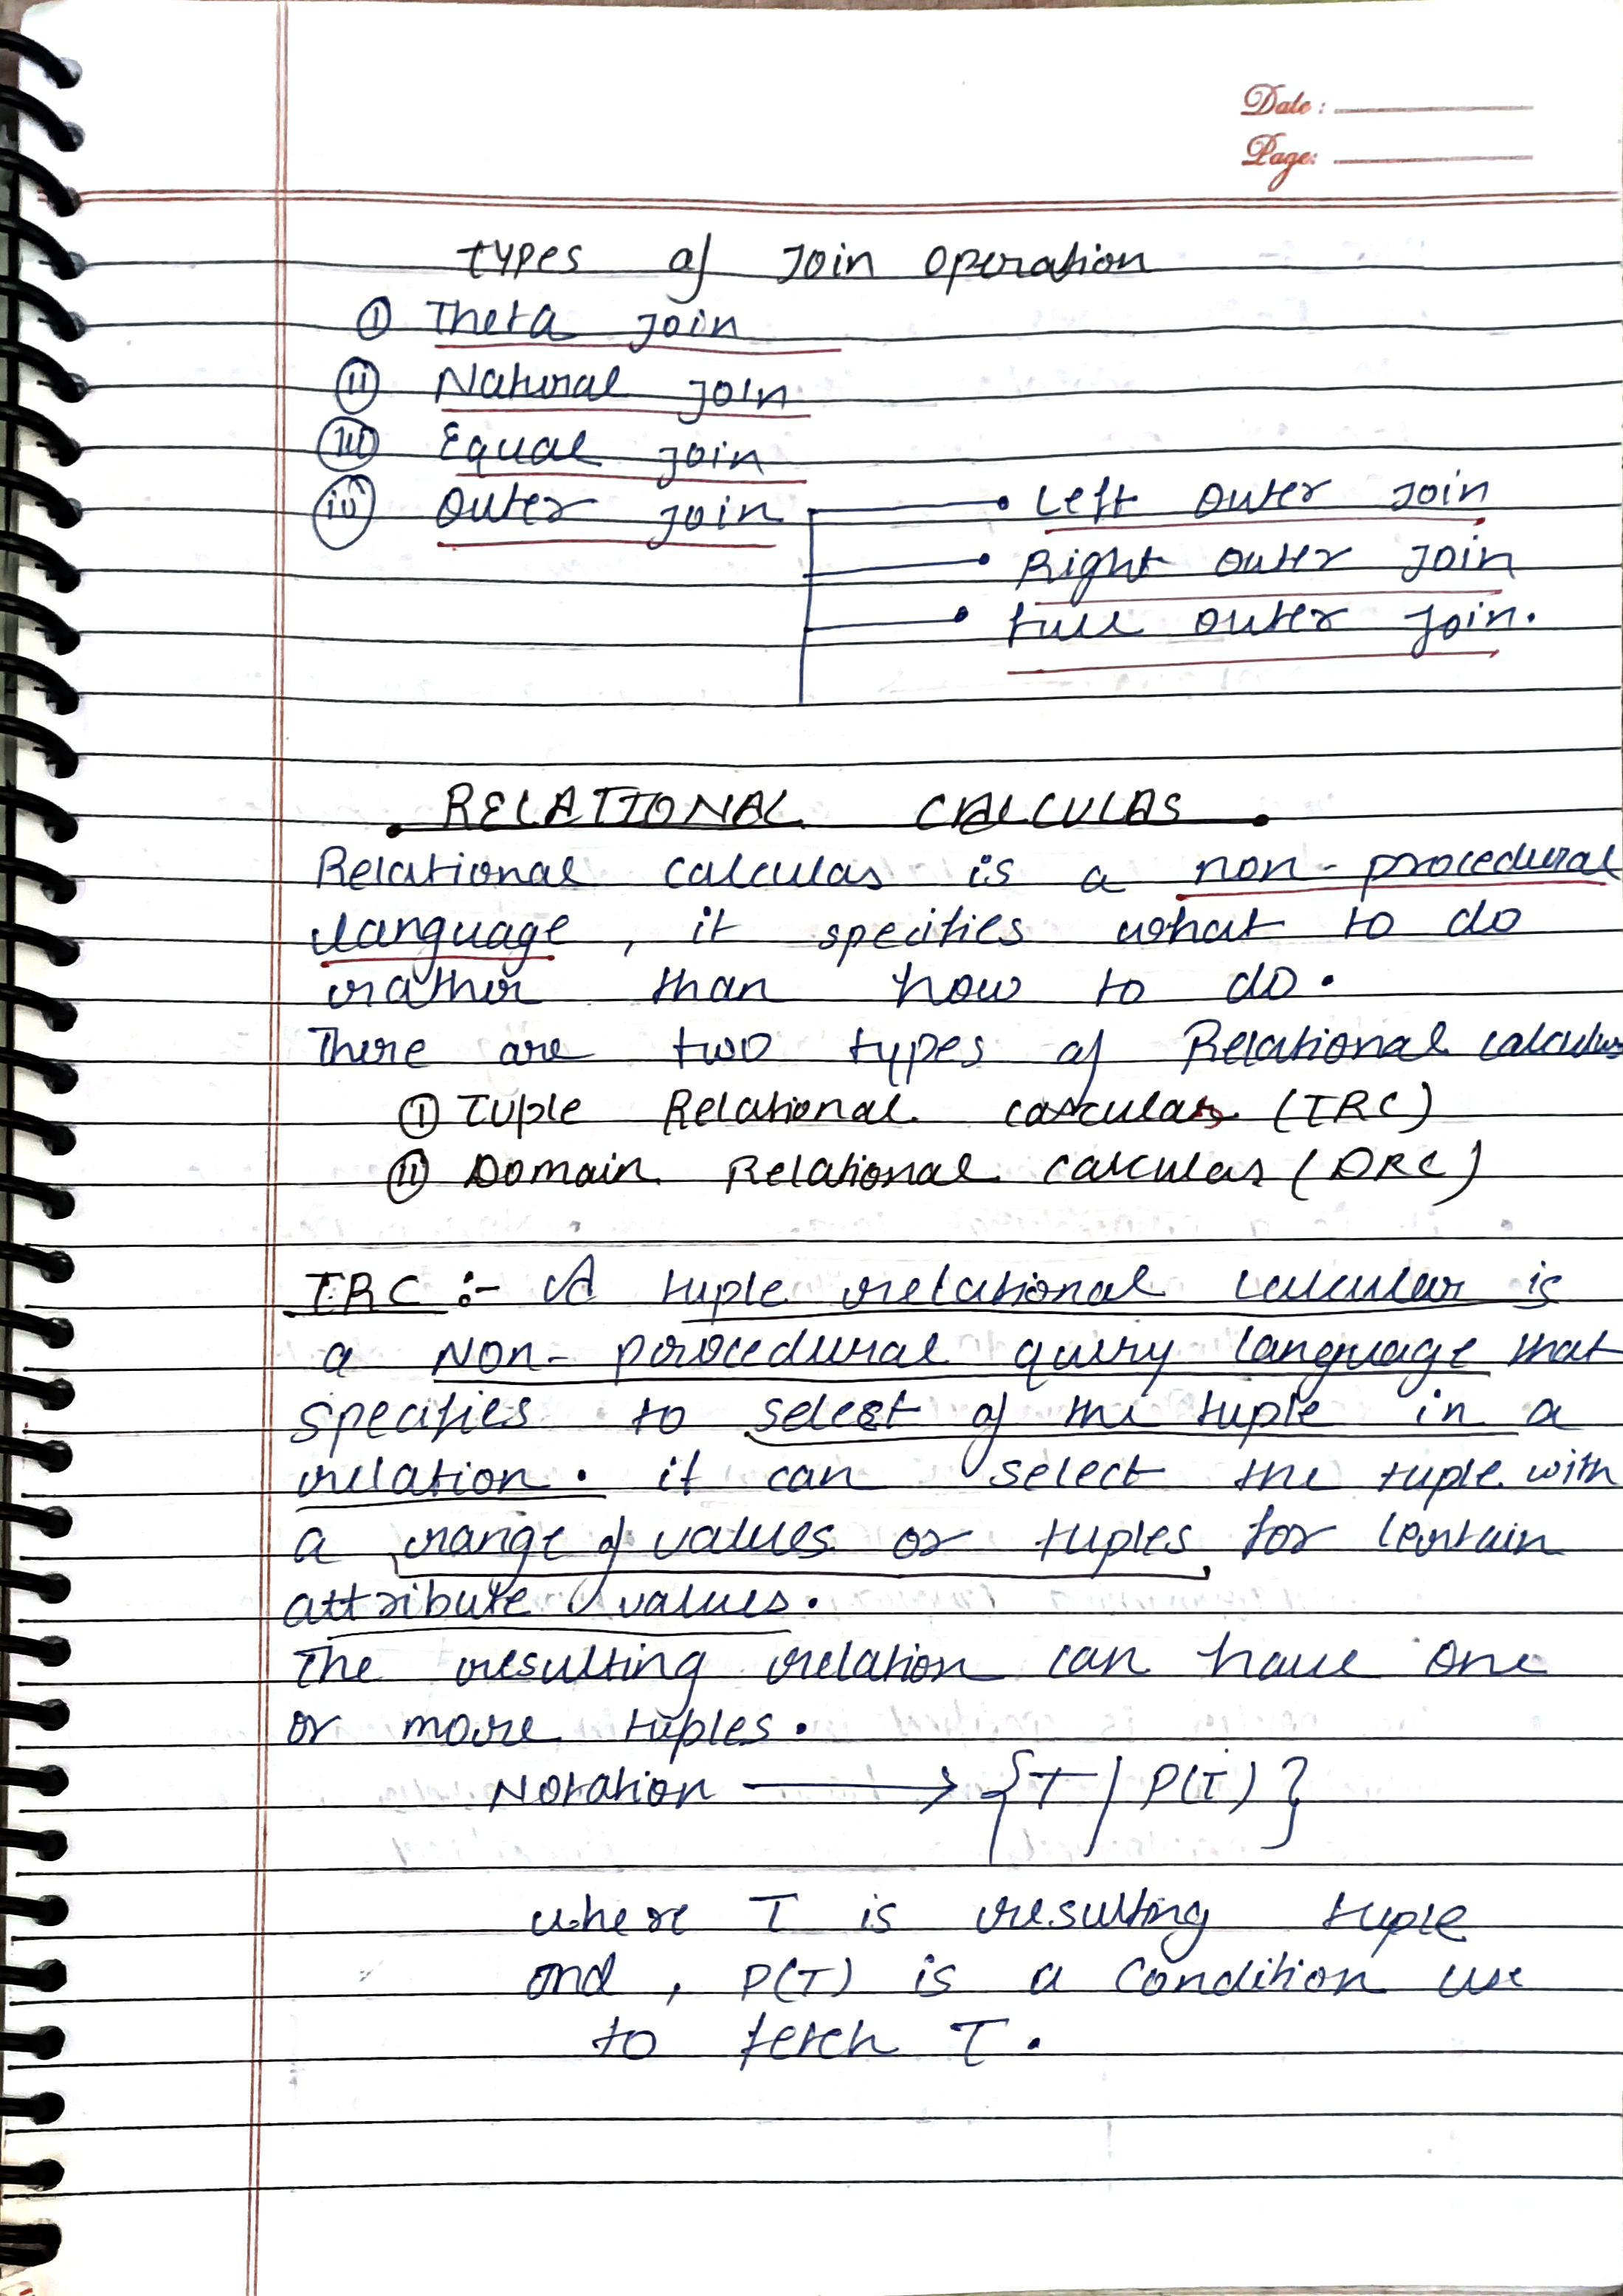 Date :
Page:
Types of Join Operation
(i) Theta join
(ii) Natural join
(iii) Equal join
(iv) Outer join
Left Outer Join
Right Outer Join
Full Outer Join.
RELATIONAL CALCULAS
Relational calculas is a non-procedural
language, it specifies what to do
rather than how to do.
There are two types of Relational calculus
(i) Tuple Relational calculas (TRC)
(ii) Domain Relational calculas (DRC)
TRC :- A tuple relational calcular is
a Non-procedural query language that
specifies to select of the tuple in a
relation. it can select the tuple with
a range of values or tuples for certain
attribute values.
The resulting relation can have one
or more tuples.
Notation → {T / P(T) }
where T is resulting tuple
and, P(T) is a condition use
to fetch T.